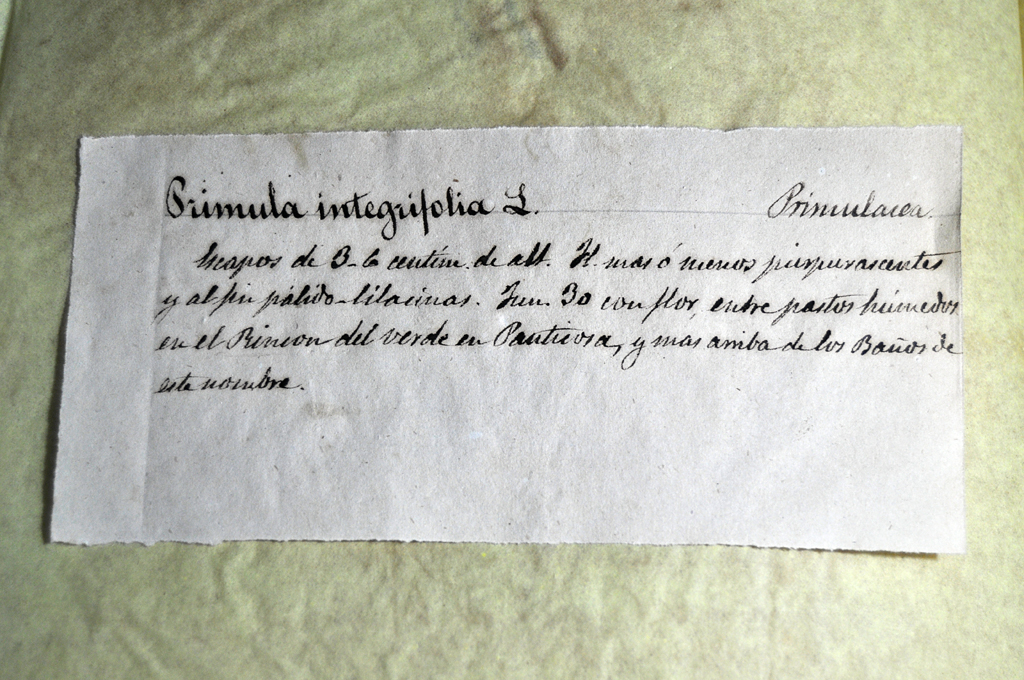 Primula integrifolia L. Primulacea.
Escapos de 3-6 centím. de alt. Fl. mas ó menos purpurascentes
y al fin pálido-lilacinas. Jun. 30 con flor, entre pastos húmedos
en el Rincon del verde en Panticosa, y mas arriba de los Baños de
este nombre.